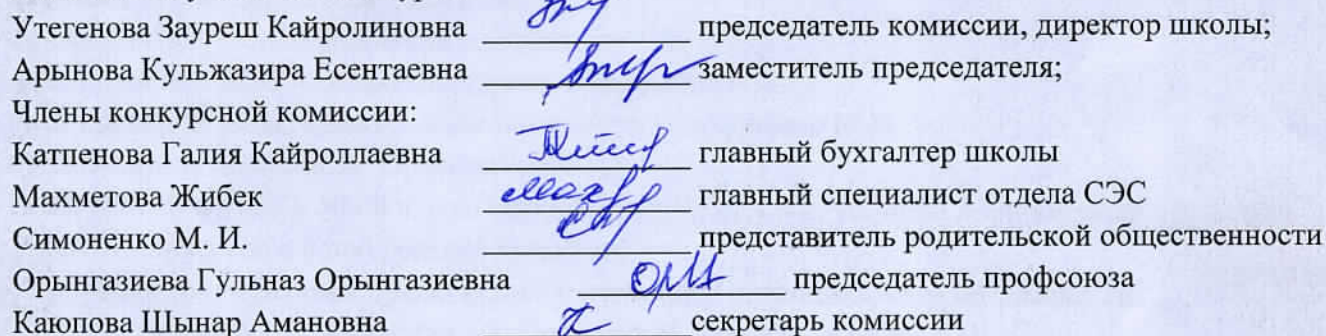 Утегенова Зауреш Кайролиновна ________ председатель комиссии, директор школы;
Арынова Кульжазира Есентаевна ________ заместитель председателя;
Члены конкурсной комиссии:
Катпенова Галия Кайроллаевна ________ главный бухгалтер школы
Махметова Жибек ________ главный специалист отдела СЭС
Симоненко М. И. ________ представитель родительской общественности
Орынгазиева Гульназ Орынгазиевна ________ председатель профсоюза
Каюпова Шынар Амановна секретарь комиссии